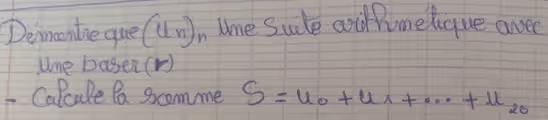 Démontre que (Un)n Une Suite arithmétique avec
Une baser (r)
- Calcule la somme S = u₀ + u₁ + ... + u₂₀